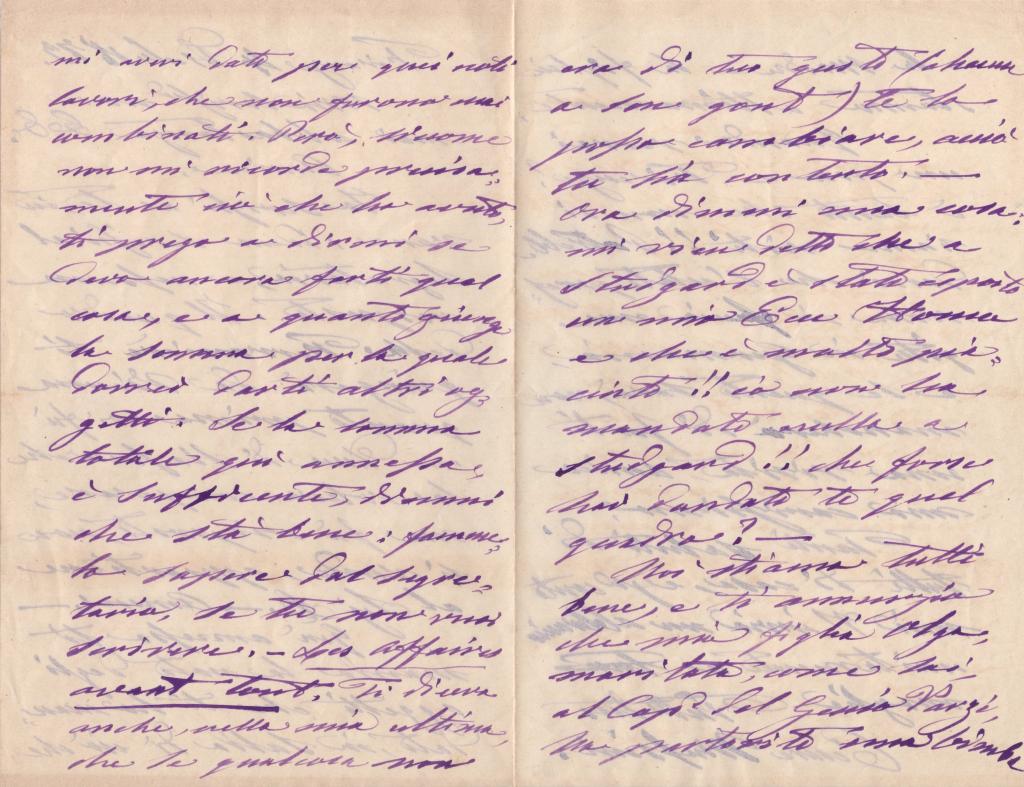 mi avevi dato per quei noti
lavori, che non furono mai
combinati. Però, siccome
non mi ricordo precisa„
mente ciò che ho avuto,
ti prego a dirmi se
devo ancora farti qual
cosa, e a quanto giunge
la somma per la quale
dovrei darti altri og„
getti. Se la somma
totale qui annessa,
è sufficente, dimmi
che stà bene: famme„
lo sapere dal segre„
tario, se tu non vuoi
scrivere. – Les affaires
avant tout. Ti diceva
anche, nella mia ultima,
che se qualcosa non
era di tuo gusto (chacun
a son gout) te lo
posso cambiare, acciò
tu sia contento. —
Ora dimmi una cosa:
mi vien detto che a
Studgard è stato esposto
un mio Ecce Homo
e che è molto pia„
ciuto!! io non ho
mandato nulla a
Studgard!! che forse
hai mandato te quel
quadro? —
Noi stiamo tutti
bene, e ti annunzio
che mia figlia Olga,
maritata, come sai,
al Capº del Genio
ha partorito una bimba